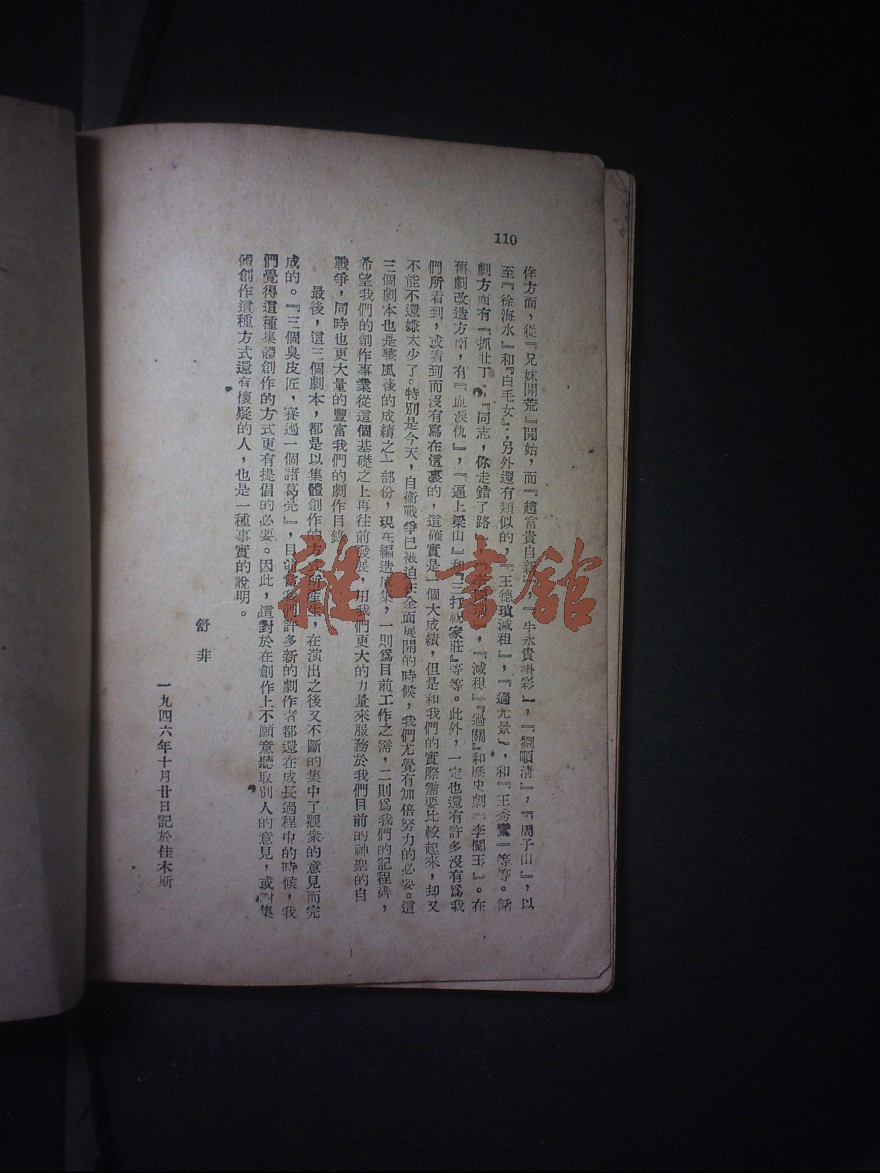 110
作方面，從『兄妹開荒』開始，而『趙富貴自新』，『牛永貴掛彩』，『劉順清』，『周子山』，以
至『徐海水』和『白毛女』；另外還有類似的，『王德瑣減租』，『過光景』，和『王秀鸞』等等。話
劇方面有『抓壯丁』，『同志，你走錯了路』，『減租』『過關』和歷史劇『李闖王』。在
舊劇改造方面，有『血淚仇』，『逼上梁山』和『三打祝家莊』等等。此外，一定也還有許多沒有爲我
們所看到，或看到而沒有寫在這裏的，這確實是一個大成績，但是和我們的實際需要比較起來，却又
不能不還嫌太少了。特別是今天，自衞戰爭已被迫在全面展開的時候，我們尤覺有加倍努力的必要。這
三個劇本也是整風後的成績之一部份，現在編造成集，一則爲目前工作之需，二則爲我們的記程碑，
希望我們的創作事業從這個基礎之上再往前發展，用我們更大的力量來服務於我們目前的神聖的自
戰爭，同時也更大量的豐富我們的劇作目錄。
最後，這三個劇本，都是以集體創作的方式所產生，在演出之後又不斷的集中了觀衆的意見而完
成的。『三個臭皮匠，賽過一個諸葛亮』，目前當我們許多新的劇作者都還在成長過程中的時候，我
們覺得這種集體創作的方式更有提倡的必要。因此，這對於在創作上不願意聽取別人的意見，或對集
體創作這種方式還有懷疑的人，也是一種事實的說明。
舒 非
一九四六年十月廿日記於佳木斯
雜·書館